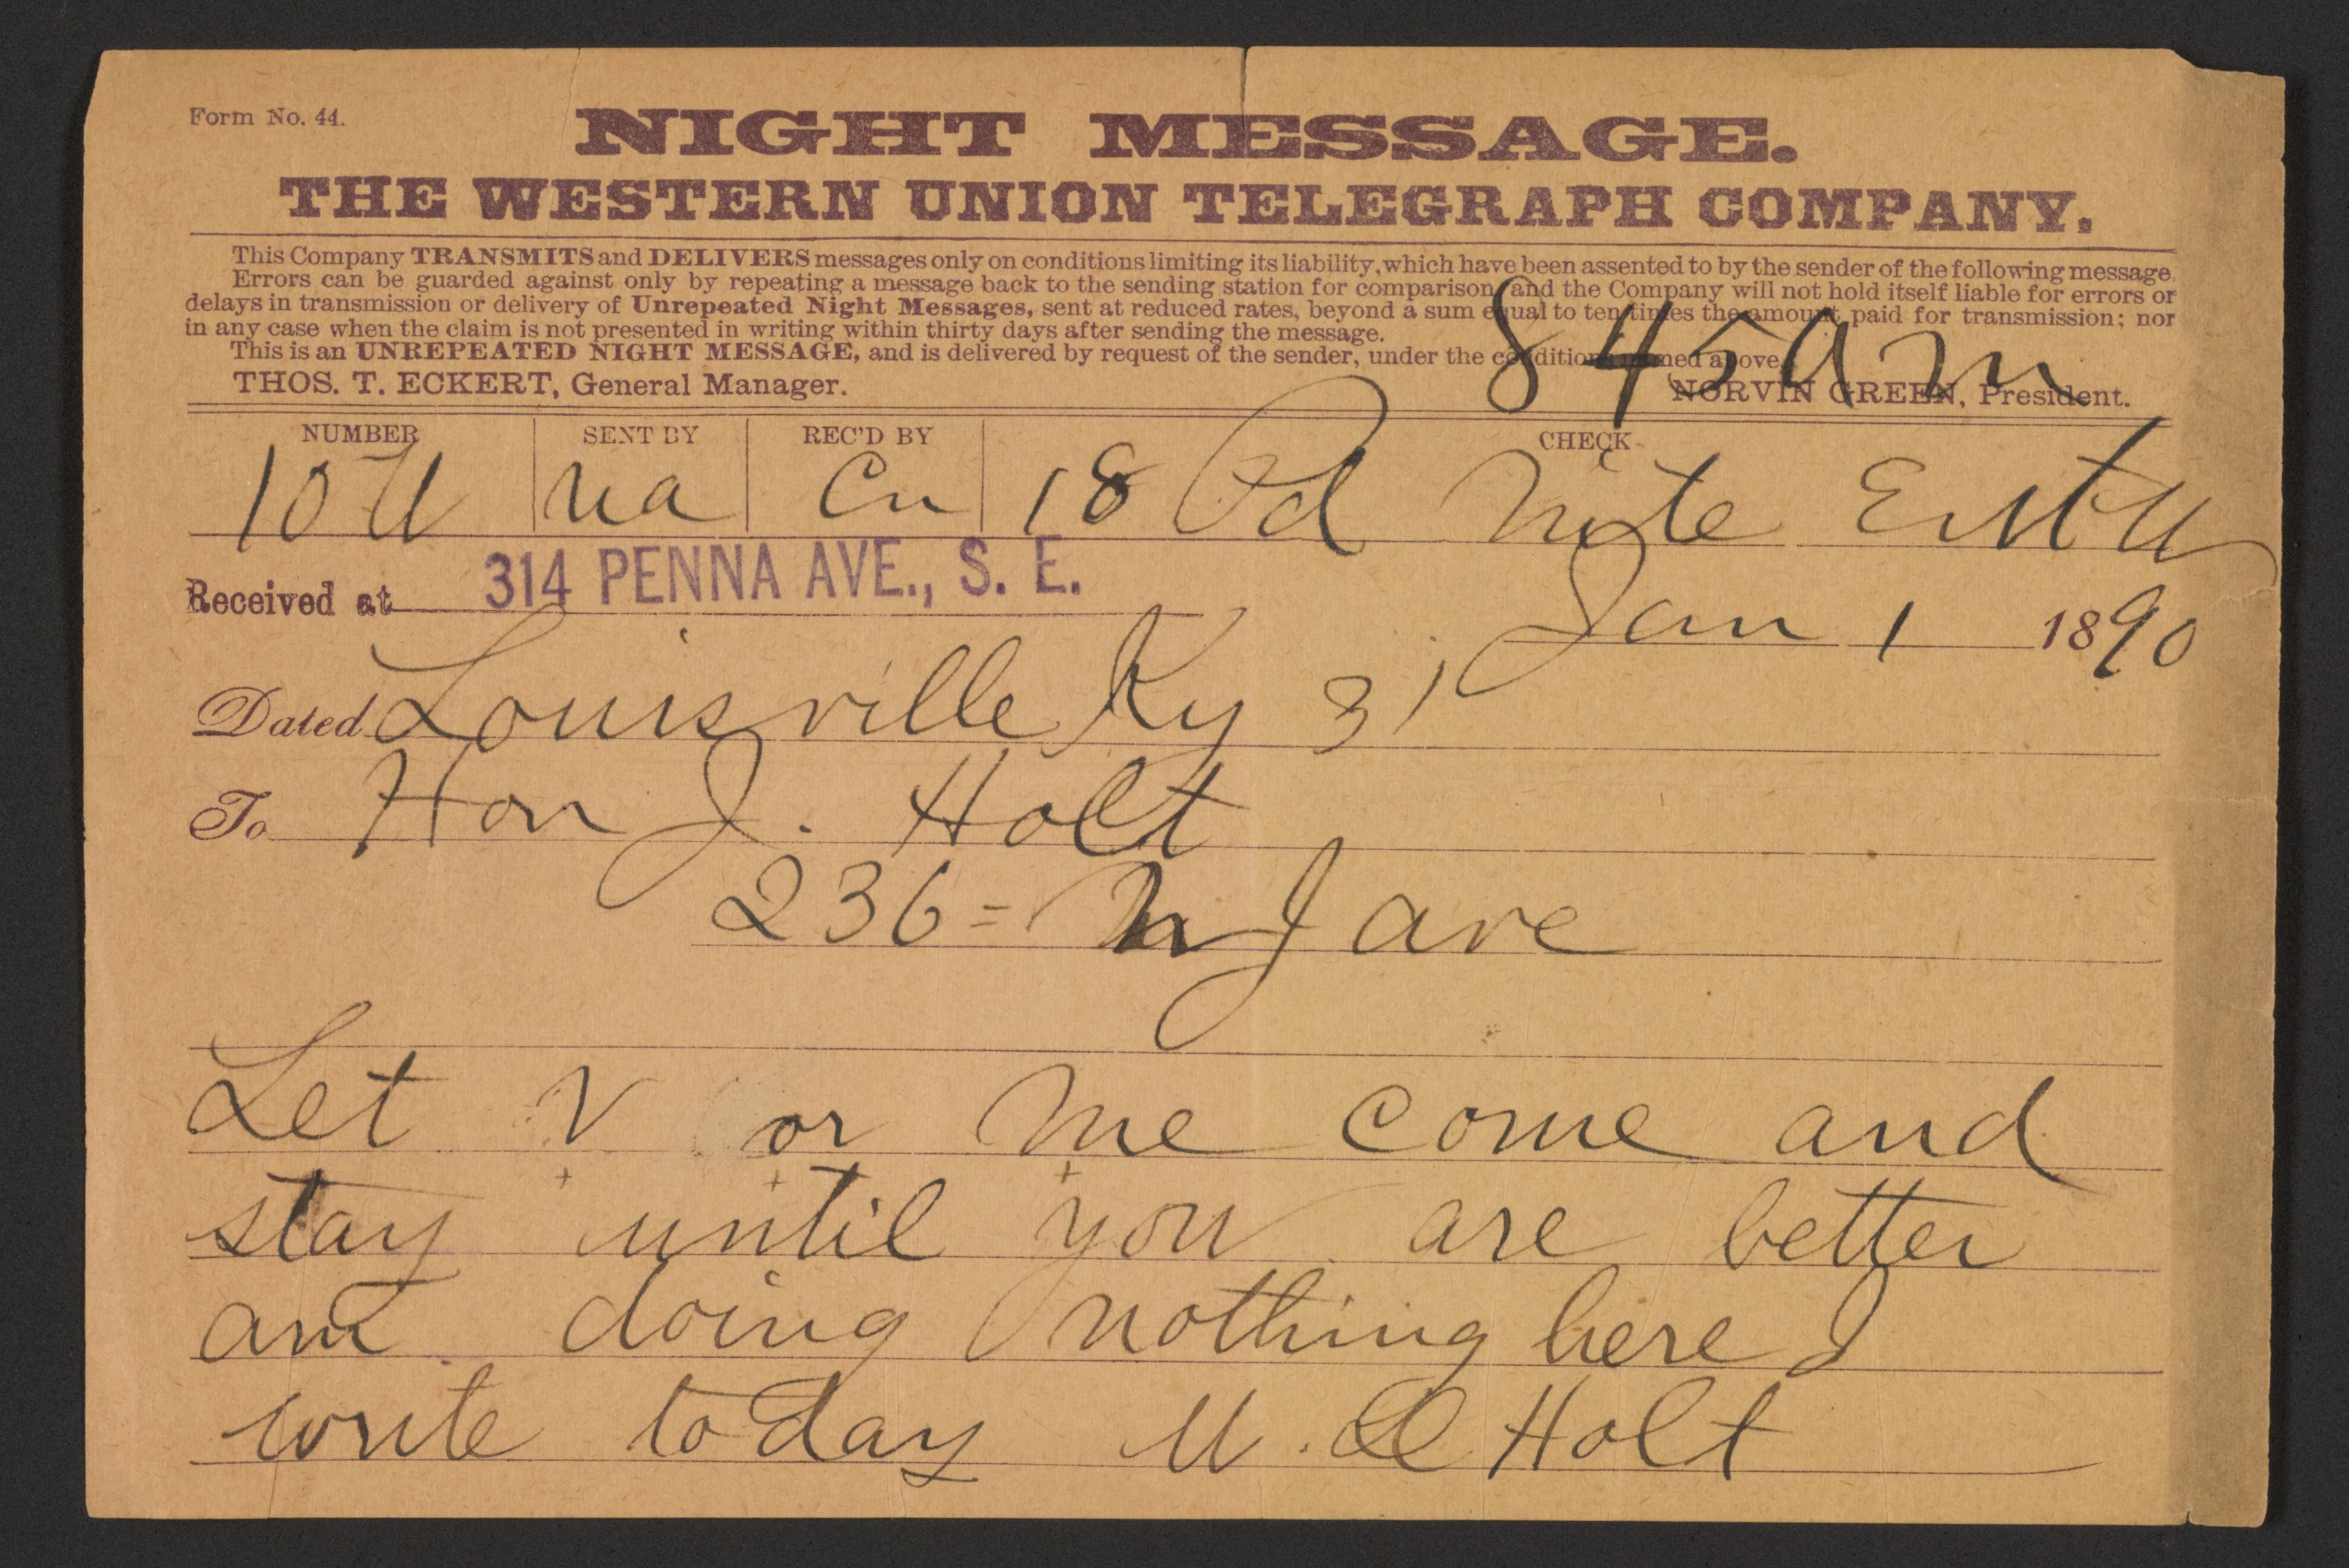 Form No. 44.
NIGHT MESSAGE.
THE WESTERN UNION TELEGRAPH COMPANY.
This Company TRANSMITS and DELIVERS messages only on conditions limiting its liability, which have been assented to by the sender of the following message.
Errors can be guarded against only by repeating a message back to the sending station for comparison, and the Company will not hold itself liable for errors or
delays in transmission or delivery of Unrepeated Night Messages, sent at reduced rates, beyond a sum equal to ten times the amount paid for transmission; nor
in any case when the claim is not presented in writing within thirty days after sending the message.
This is an UNREPEATED NIGHT MESSAGE, and is delivered by request of the sender, under the conditions named above.
845am
THOS. T. ECKERT, General Manager. NORVIN GREEN, President.
NUMBER SENT BY REC'D BY CHECK
10 na Cn 18 Pd Nite
Received at 314 PENNA AVE., S. E.
Jan 1 1890
Dated Louisville Ky 31
To Hon J. Holt
236= N J ave
Let V or me come and
stay until you are better
am doing nothing here I
write today W. D Holt